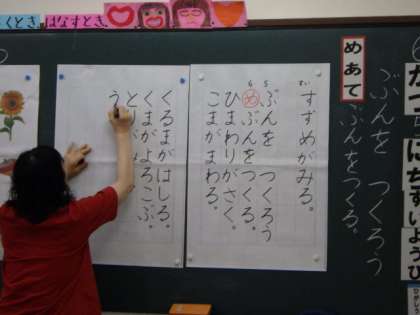 くとき
はなすとき
がつ にち すいようび
ぶんを つくろう
めあて
ぶんをつくる。
すずめがみる。
ぶんを つくろう
め ぶんをつくる。
ひまわりがさく。
こまがまわる。
くるまがはしる。
くまがよろこぶ。
とりが
う